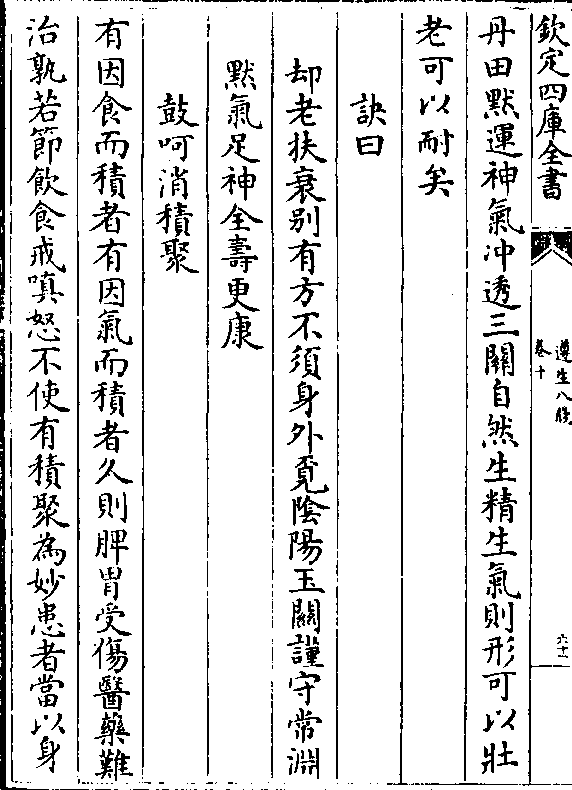 欽定四庫全書
遵生八牋
卷十
六十一
丹田默運神氣冲透三關自然生精生氣則形可以壯
老可以耐矣
訣曰
却老扶衰别有方不須身外覓陰陽玉關謹守常淵
默氣足神全壽更康
鼓呵消積聚
有因食而積者有因氣而積者久則脾胃受傷醫藥難
治孰若節飲食戒嗔怒不使有積聚為妙患者當以身